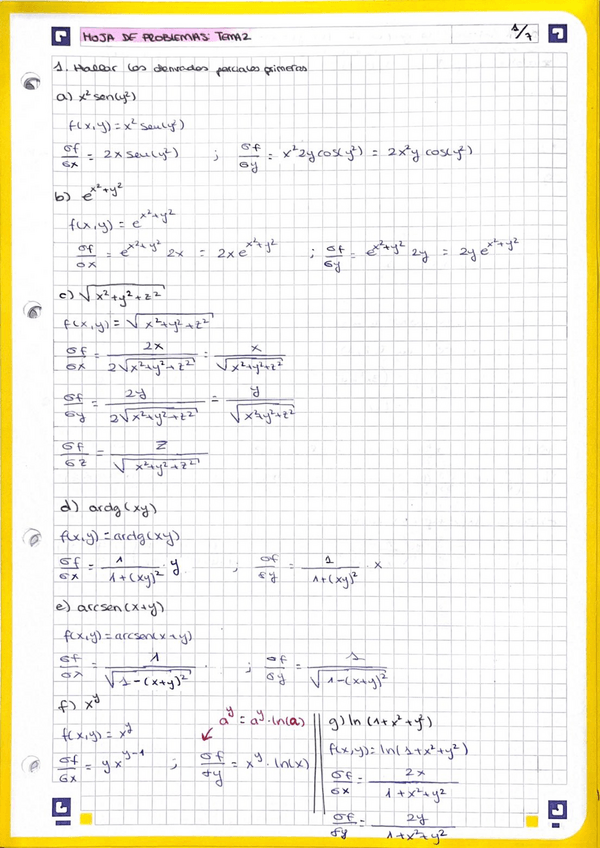 HOJA DE PROBLEMAS TEMA 2
1/7
1. Hallar las derivadas parciales primeras
a) x² sen(y²)
f(x,y) = x² sen(y²)
σf/σx = 2x sen(y²) ; σf/σy = x² 2y cos(y²) = 2x²y cos(y²)
b) e^(x²+y²)
f(x,y) = e^(x²+y²)
σf/σx = e^(x²+y²) 2x = 2x e^(x²+y²) ; σf/σy = e^(x²+y²) 2y = 2y e^(x²+y²)
c) √(x²+y²+z²)
f(x,y) = √(x²+y²+z²)
σf/σx = 2x/(2√(x²+y²+z²)) = x/√(x²+y²+z²)
σf/σy = 2y/(2√(x²+y²+z²)) = y/√(x²+y²+z²)
σf/σz = z/√(x²+y²+z²)
d) arctg(xy)
f(x,y) = arctg(xy)
σf/σx = 1/(1+(xy)²) · y ; σf/σy = 1/(1+(xy)²) · x
e) arcsen(x+y)
f(x,y) = arcsen(x+y)
σf/σx = 1/√(1-(x+y)²) ; σf/σy = 1/√(1-(x+y)²)
f) x^y
a^y = a^y · ln(a)
f(x,y) = x^y
σf/σx = y x^(y-1) ; σf/σy = x^y · ln(x)
g) ln(1+x²+y²)
f(x,y) = ln(1+x²+y²)
σf/σx = 2x/(1+x²+y²)
σf/σy = 2y/(1+x²+y²)